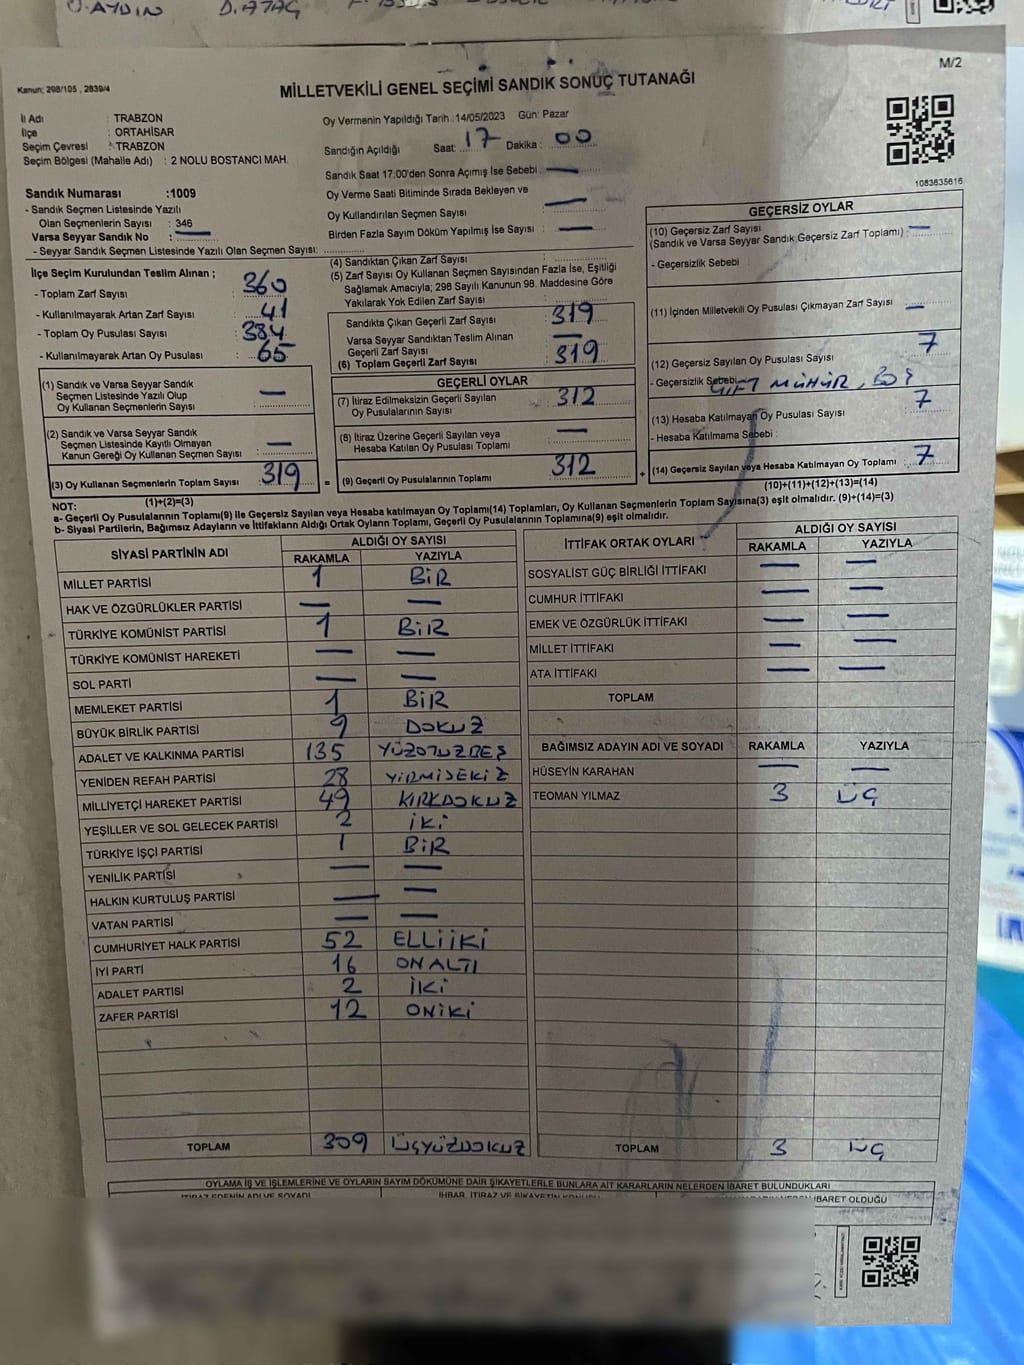 M/2
Kanun: 298/105 , 2839/4
MİLLETVEKİLİ GENEL SEÇİMİ SANDIK SONUÇ TUTANAĞI
İl Adı : TRABZON
İlçe : ORTAHİSAR
Seçim Çevresi : TRABZON
Seçim Bölgesi (Mahalle Adı) : 2 NOLU BOSTANCI MAH.
Oy Vermenin Yapıldığı Tarih :14/05/2023 Gün: Pazar
Sandığın Açıldığı Saat: 17 Dakika : 00
Sandık Saat 17:00'den Sonra Açımış İse Sebebi : —
Oy Verme Saati Bitiminde Sırada Bekleyen ve
Oy Kullandırılan Seçmen Sayısı : —
Birden Fazla Sayım Döküm Yapılmış İse Sayısı : —
1083635616
Sandık Numarası :1009
- Sandık Seçmen Listesinde Yazılı
Olan Seçmenlerin Sayısı : 346
Varsa Seyyar Sandık No : —
- Seyyar Sandık Seçmen Listesinde Yazılı Olan Seçmen Sayısı:
İlçe Seçim Kurulundan Teslim Alınan ;
- Toplam Zarf Sayısı : 360
- Kullanılmayarak Artan Zarf Sayısı : 41
- Toplam Oy Pusulası Sayısı : 384
- Kullanılmayarak Artan Oy Pusulası : 65
(1) Sandık ve Varsa Seyyar Sandık
Seçmen Listesinde Yazılı Olup
Oy Kullanan Seçmenlerin Sayısı : —
(2) Sandık ve Varsa Seyyar Sandık
Seçmen Listesinde Kayıtlı Olmayan
Kanun Gereği Oy Kullanan Seçmen Sayısı : —
(3) Oy Kullanan Seçmenlerin Toplam Sayısı : 319
(4) Sandıktan Çıkan Zarf Sayısı :
(5) Zarf Sayısı Oy Kullanan Seçmen Sayısından Fazla İse, Eşitliği
Sağlamak Amacıyla; 298 Sayılı Kanunun 98. Maddesine Göre
Yakılarak Yok Edilen Zarf Sayısı :
Sandıkta Çıkan Geçerli Zarf Sayısı : 319
Varsa Seyyar Sandıktan Teslim Alınan
Geçerli Zarf Sayısı : —
(6) Toplam Geçerli Zarf Sayısı : 319
GEÇERLİ OYLAR
(7) İtiraz Edilmeksizin Geçerli Sayılan
Oy Pusulalarının Sayısı : 312
(8) İtiraz Üzerine Geçerli Sayılan veya
Hesaba Katılan Oy Pusulası Toplamı : —
= (9) Geçerli Oy Pusulalarının Toplamı : 312
GEÇERSİZ OYLAR
(10) Geçersiz Zarf Sayısı
(Sandık ve Varsa Seyyar Sandık Geçersiz Zarf Toplamı) : —
- Geçersizlik Sebebi :
(11) İçinden Milletvekili Oy Pusulası Çıkmayan Zarf Sayısı : —
(12) Geçersiz Sayılan Oy Pusulası Sayısı : 7
- Geçersizlik Sebebi : ÇİFT MÜHÜR, BOŞ
(13) Hesaba Katılmayan Oy Pusulası Sayısı : 7
- Hesaba Katılmama Sebebi :
+ (14) Geçersiz Sayılan veya Hesaba Katılmayan Oy Toplamı : 7
(10)+(11)+(12)+(13)=(14)
NOT: (1)+(2)=(3)
a- Geçerli Oy Pusulalarının Toplamı(9) ile Geçersiz Sayılan veya Hesaba katılmayan Oy Toplamı(14) Toplamları, Oy Kullanan Seçmenlerin Toplam Sayısına(3) eşit olmalıdır. (9)+(14)=(3)
b- Siyasi Partilerin, Bağımsız Adayların ve İttifakların Aldığı Ortak Oyların Toplamı, Geçerli Oy Pusulalarının Toplamına(9) eşit olmalıdır.
SİYASİ PARTİNİN ADI ALDIĞI OY SAYISI
RAKAMLA YAZIYLA
MİLLET PARTİSİ 1 BİR
HAK VE ÖZGÜRLÜKLER PARTİSİ — —
TÜRKİYE KOMÜNİST PARTİSİ 1 BİR
TÜRKİYE KOMÜNİST HAREKETİ — —
SOL PARTİ — —
MEMLEKET PARTİSİ 1 BİR
BÜYÜK BİRLİK PARTİSİ 9 DOKUZ
ADALET VE KALKINMA PARTİSİ 135 YÜZOTUZBEŞ
YENİDEN REFAH PARTİSİ 28 YİRMİSEKİZ
MİLLİYETÇİ HAREKET PARTİSİ 49 KIRKDOKUZ
YEŞİLLER VE SOL GELECEK PARTİSİ 2 İKİ
TÜRKİYE İŞÇİ PARTİSİ 1 BİR
YENİLİK PARTİSİ — —
HALKIN KURTULUŞ PARTİSİ — —
VATAN PARTİSİ — —
CUMHURİYET HALK PARTİSİ 52 ELLİİKİ
İYİ PARTİ 16 ONALTI
ADALET PARTİSİ 2 İKİ
ZAFER PARTİSİ 12 ONİKİ
TOPLAM 309 ÜÇYÜZDOKUZ
İTTİFAK ORTAK OYLARI ALDIĞI OY SAYISI
RAKAMLA YAZIYLA
SOSYALİST GÜÇ BİRLİĞİ İTTİFAKI — —
CUMHUR İTTİFAKI — —
EMEK VE ÖZGÜRLÜK İTTİFAKI — —
MİLLET İTTİFAKI — —
ATA İTTİFAKI — —
TOPLAM
BAĞIMSIZ ADAYIN ADI VE SOYADI RAKAMLA YAZIYLA
HÜSEYİN KARAHAN — —
TEOMAN YILMAZ 3 ÜÇ
TOPLAM 3 ÜÇ
OYLAMA İŞ VE İŞLEMLERİNE VE OYLARIN SAYIM DÖKÜMÜNE DAİR ŞİKAYETLERLE BUNLARA AİT KARARLARIN NELERDEN İBARET BULUNDUKLARI
İTİRAZ EDENİN ADI VE SOYADI İHBAR, İTİRAZ VE ŞİKAYETİN KONUSU İBARET OLDUĞU